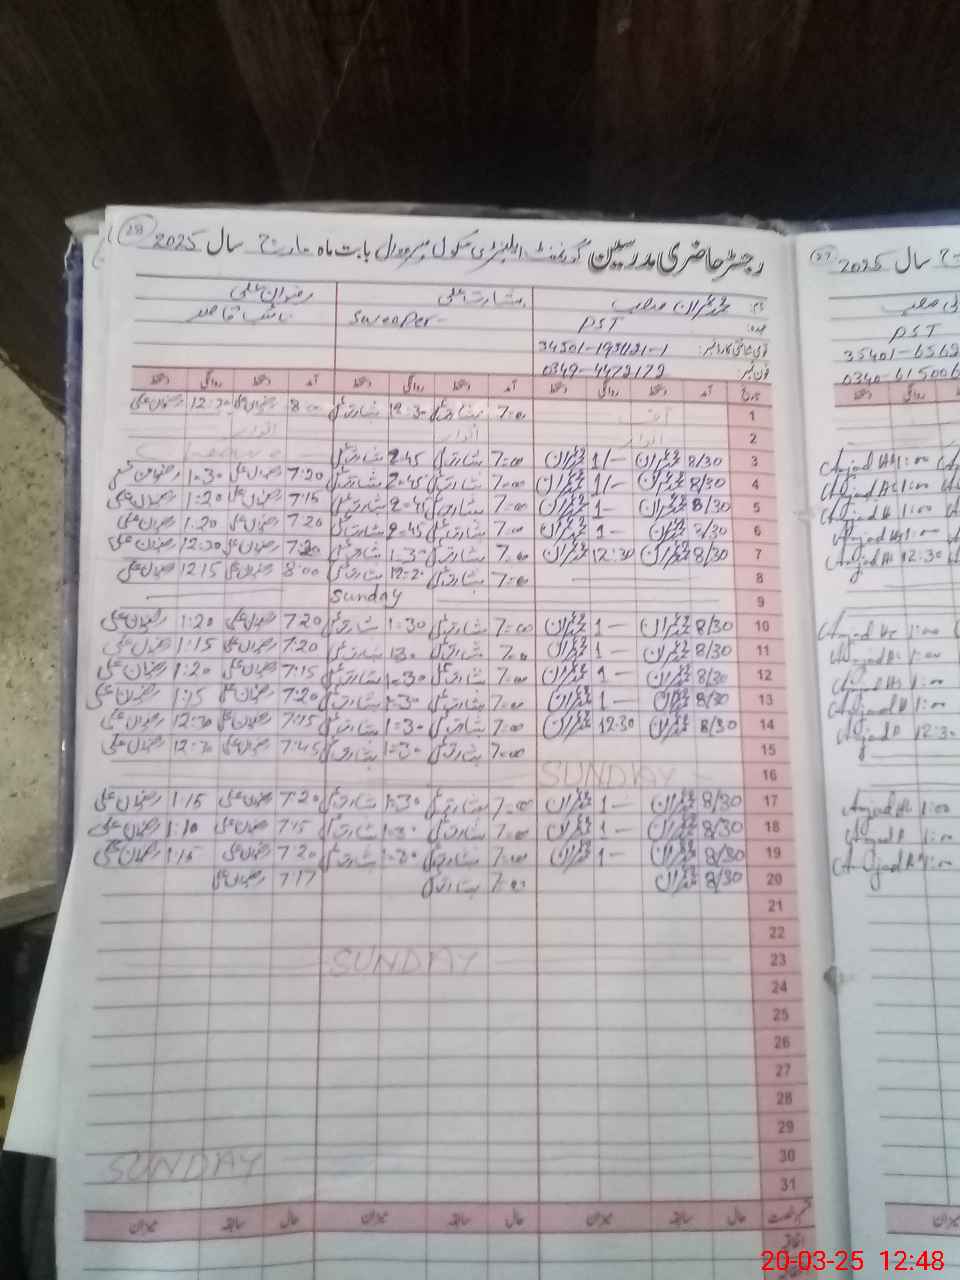 رجسٹر حاضری مدرسین گورنمنٹ ایلیمنٹری سکول بابت ماہ مارچ سال 2025
28
نام: عمران صاحب بشارت علی رضوان علی
عہدہ: PST Sweeper نائب قاصد
قومی شناختی کارڈ نمبر:
فون نمبر: 0349-4472172
تاریخ آمد دستخط روانگی دستخط آمد دستخط روانگی دستخط آمد دستخط روانگی دستخط
1 7:00 بشارت علی 12:30 بشارت علی 8:00 رضوان علی 12:30 رضوان علی
2 اتوار اتوار اتوار
3 8/30 عمران 1/- عمران 7:00 بشارت علی 2:45 بشارت علی
4 8/30 عمران 1/- عمران 7:00 بشارت علی 2:45 بشارت علی 7:20 رضوان علی 1:30
5 8/30 عمران 1- عمران 7:00 بشارت علی 2:45 بشارت علی 7:15 رضوان علی 1:20 رضوان علی
6 8/30 عمران 1- عمران 7:00 بشارت علی 2:45 بشارت علی 7:20 رضوان علی 1:20 رضوان علی
7 8/30 عمران 12:30 عمران 7:00 بشارت علی 1:30 بشارت علی 7:20 رضوان علی 12:30 رضوان علی
8 7:00 بشارت علی بشارت علی 8:00 رضوان علی 12:15 رضوان علی
9 Sunday
10 8/30 عمران 1- عمران 7:00 بشارت علی 1:30 بشارت علی 7:20 رضوان علی 1:20 رضوان علی
11 8/30 عمران 1- عمران 7:00 بشارت علی 1:30 بشارت علی 7:20 رضوان علی 1:15 رضوان علی
12 8/30 عمران 1- عمران 7:00 بشارت علی 1:30 بشارت علی 7:15 رضوان علی 1:20 رضوان علی
13 8/30 عمران 1- عمران 7:00 بشارت علی 1:30 بشارت علی 7:20 رضوان علی 1:15 رضوان علی
14 8/30 عمران 12:30 عمران 7:00 بشارت علی 1:30 بشارت علی 7:15 رضوان علی 12:30 رضوان علی
15 7:00 بشارت علی 1:30 بشارت علی 7:45 رضوان علی 12:30 رضوان علی
16 SUNDAY
17 8/30 عمران 1- عمران 7:00 بشارت علی 1:30 بشارت علی 7:20 رضوان علی 1:15 رضوان علی
18 8/30 عمران 1- عمران 7:00 بشارت علی 1:30 بشارت علی 7:15 رضوان علی 1:10 رضوان علی
19 8/30 عمران 1- عمران 7:00 بشارت علی 1:30 بشارت علی 7:20 رضوان علی 1:15 رضوان علی
20 8/30 عمران 7:00 بشارت علی 7:17 رضوان علی
21
22
23 SUNDAY
24
25
26
27
28
29
30 SUNDAY
31
حال سابقہ میزان حال سابقہ میزان حال سابقہ میزان
اتفاقیہ
27 سال 2025
PST
Amjad 1:00
Amjad 1:00
Amjad 1:00
Amjad 1:00
Amjad 12:30
Amjad 1:00
Amjad 1:00
Amjad 1:00
Amjad 1:00
Amjad 12:30
Amjad 1:00
Amjad 1:00
Amjad 1:00
20-03-25 12:48